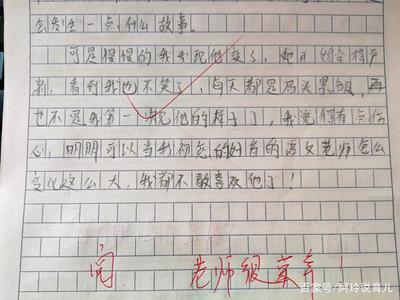 会发生一点什么故事。
可是慢慢的我发现他变了,她开始变得严
肃,看到我也不笑了,每天都是眉头紧皱,再
也不是我第一次见他的样子了,我觉得有点伤
心,明明可以当我初恋的好看的语文老师怎么
变化这么大,我都不敢喜欢他了!
阅 老师很荣幸!
百家号/阿玲说育儿